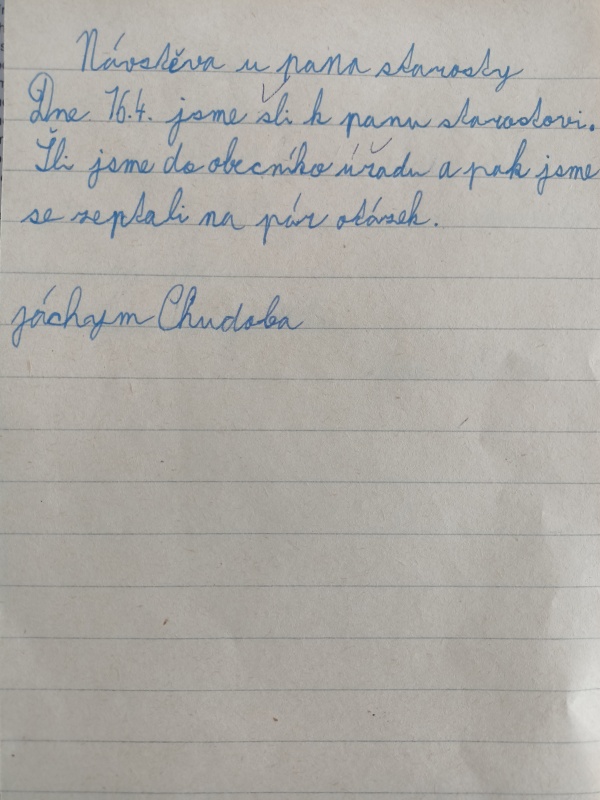 Návstěva u pana starosty
Dne 16.4. jsme šli k panu starostovi.
Šli jsme do obecníko úřadu a pak jsme
se zeptali na pár otázek.
jáchym Chudoba